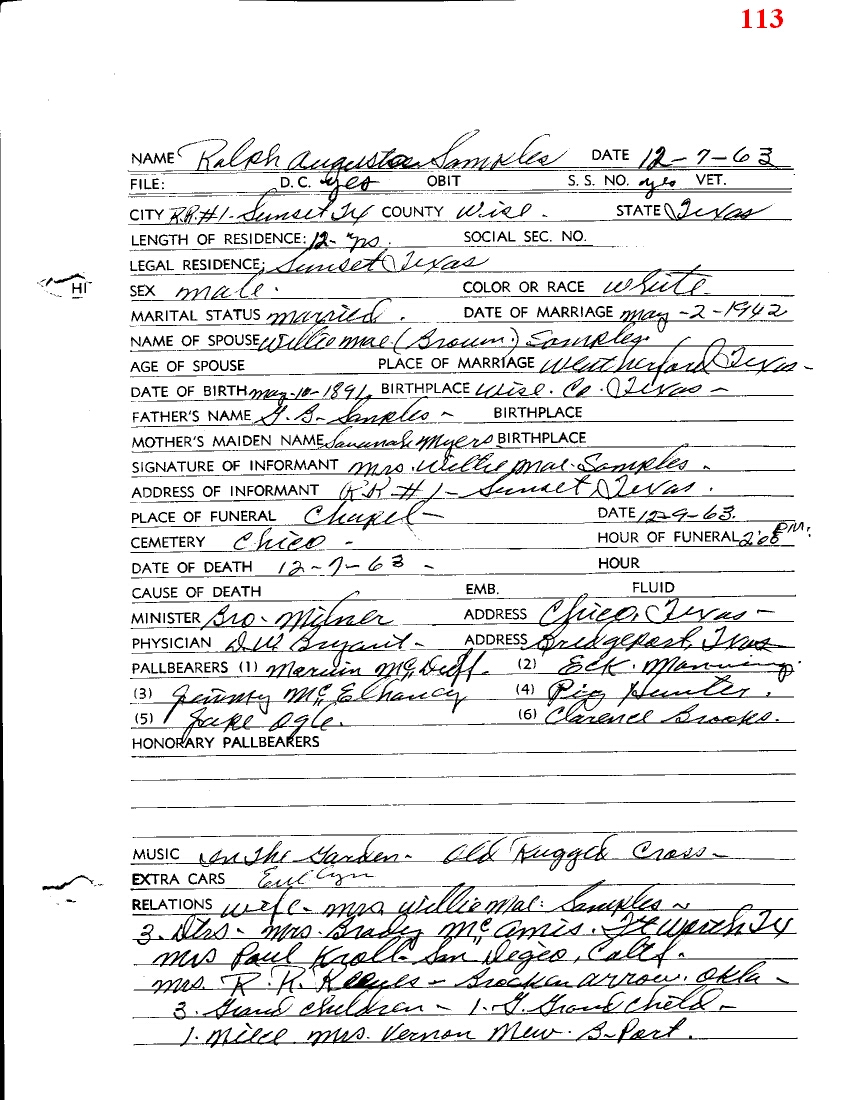 113
NAME Ralph Augustus Samples DATE 12-7-63
FILE: D.C. yes OBIT S.S. NO. yes VET.
CITY RR#1-Sunset Tx COUNTY Wise. STATE Texas
LENGTH OF RESIDENCE: 12-yrs. SOCIAL SEC. NO.
LEGAL RESIDENCE; Sunset Texas
HI
SEX male. COLOR OR RACE white
MARITAL STATUS married. DATE OF MARRIAGE may-2-1942
NAME OF SPOUSE Willie mae (Brown.) Samples.
AGE OF SPOUSE PLACE OF MARRIAGE Weatherford Texas-
DATE OF BIRTH may-10-1891, BIRTHPLACE Wise. Co. Texas-
FATHER'S NAME G.B. Samples- BIRTHPLACE
MOTHER'S MAIDEN NAME Savannah Myers BIRTHPLACE
SIGNATURE OF INFORMANT mrs. Willie mae. Samples.
ADDRESS OF INFORMANT R.R.#1-Sunset Texas.
PLACE OF FUNERAL Chapel- DATE 12-9-63.
CEMETERY Chico- HOUR OF FUNERAL 2:00 P.M.
DATE OF DEATH 12-7-63- HOUR
CAUSE OF DEATH EMB. FLUID
MINISTER Bro. Milner ADDRESS Chico, Texas-
PHYSICIAN D.W. Bryant- ADDRESS Bridgeport, Texas
PALLBEARERS (1) Marvin McDuff. (2) Eck. Manning.
(3) Jimmy McElhaney (4) Pig Hunter.
(5) Jake Ogle. (6) Clarence Brooks.
HONORARY PALLBEARERS
MUSIC In The Garden- Old Rugged Cross-
EXTRA CARS
RELATIONS wife- mrs. willie mae. Samples-
3. Dtrs- mrs. Brady McAmis. Ft worth Tx
mrs Paul Kroll- San Diego, Calif.
mrs. R.R. Reeves- Brocken arrow. Okla-
3. Grand children- 1. G. Grand child-
1. niece mrs. Vernon Mew. B-Port.